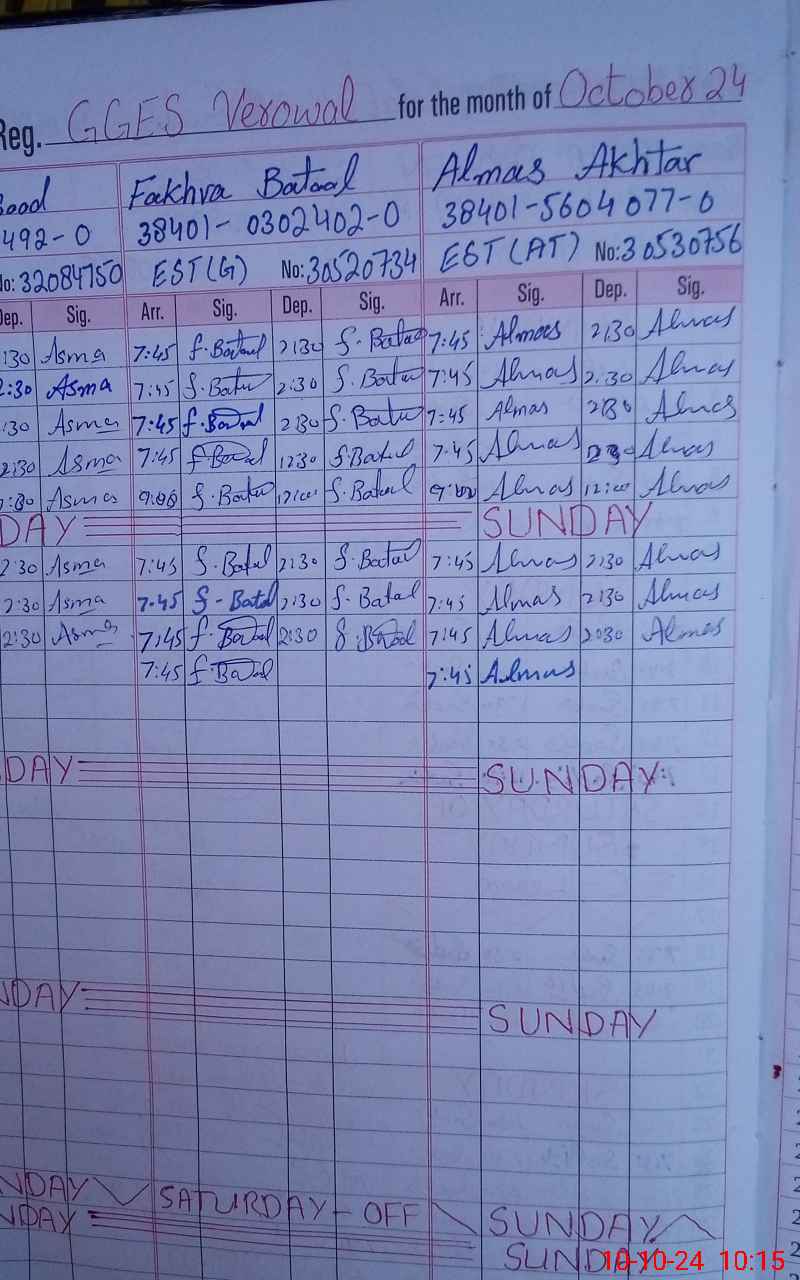 Reg. GGES Verowal for the month of October 24
Fakhra Batool Almas Akhtar
492-0 38401-0302402-0 38401-5604077-0
No:32084750 EST(G) No:30520734 EST(AT) No:30530756
Dep. Sig. Arr. Sig. Dep. Sig. Arr. Sig. Dep. Sig.
:30 Asma 7:45 f.Batool 2:30 f.Batool 7:45 Almas 2:30 Almas
2:30 Asma 7:45 f.Batool 2:30 f.Batool 7:45 Almas 2:30 Almas
:30 Asma 7:45 f.Batool 2:30 f.Batool 7:45 Almas 2:30 Almas
2:30 Asma 7:45 f.Batool 12:30 f.Batool 7:45 Almas Almas
Asma 9:00 f.Batool 12:00 f.Batool 9:00 Almas 12:00 Almas
DAY SUNDAY
2:30 Asma 7:45 f.Batool 2:30 f.Batool 7:45 Almas 2:30 Almas
2:30 Asma 7:45 f-Batool 2:30 f.Batool 7:45 Almas 2:30 Almas
2:30 Asma 7:45 f.Batool 2:30 f.Batool 7:45 Almas 2:30 Almas
7:45 f.Batool 7:45 Almas
DAY SUNDAY
NDAY SUNDAY
NDAY SATURDAY-OFF SUNDAY
NDAY SUNDAY
10-10-24 10:15